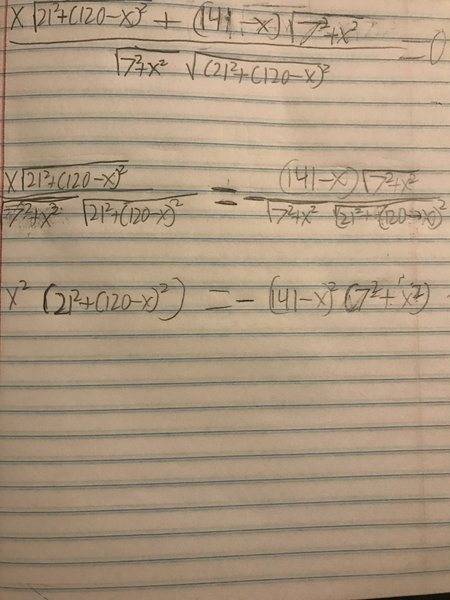 x√21²+(120-x)² + (141-x)√7²+x²
√7²+x² √(21²+(120-x)² = 0
x√21²+(120-x)² = (141-x)√7²+x²
√7²+x² √21²+(120-x)² √7²+x² √21²+(120-x)²
x² (21²+(120-x)²) = - (141-x)² (7²+x²)